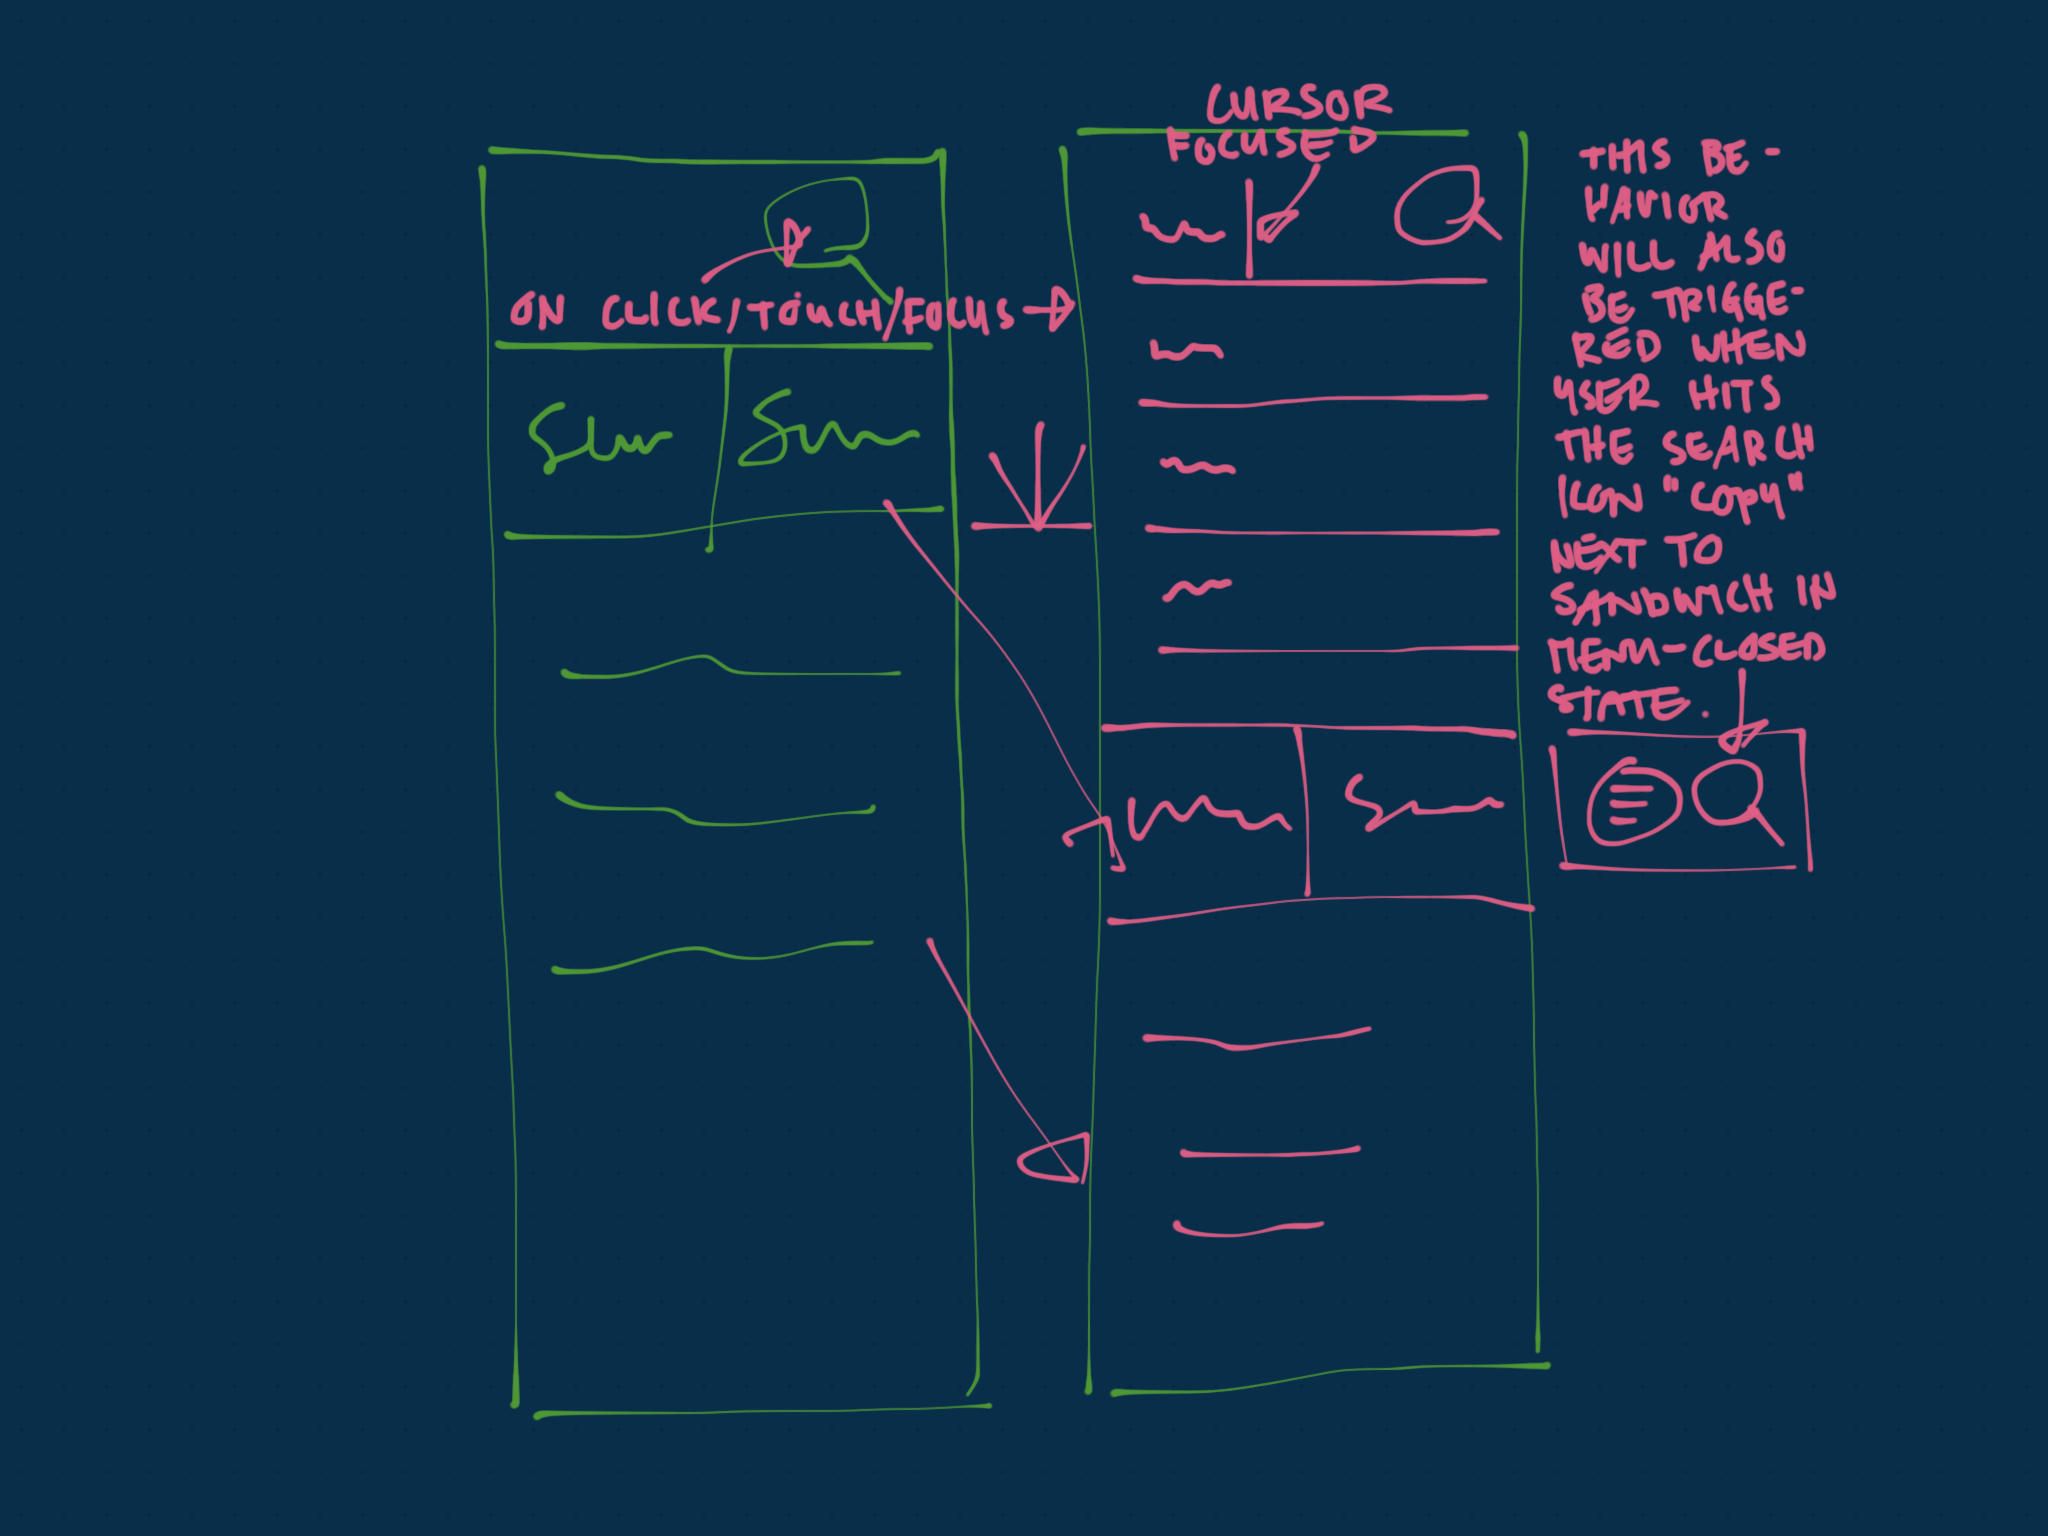 CURSOR
FOCUSED
ON CLICK/TOUCH/FOCUS
THIS BE-
HAVIOR
WILL ALSO
BE TRIGGE-
RED WHEN
USER HITS
THE SEARCH
ICON "COPY"
NEXT TO
SANDWICH IN
MENU-CLOSED
STATE.